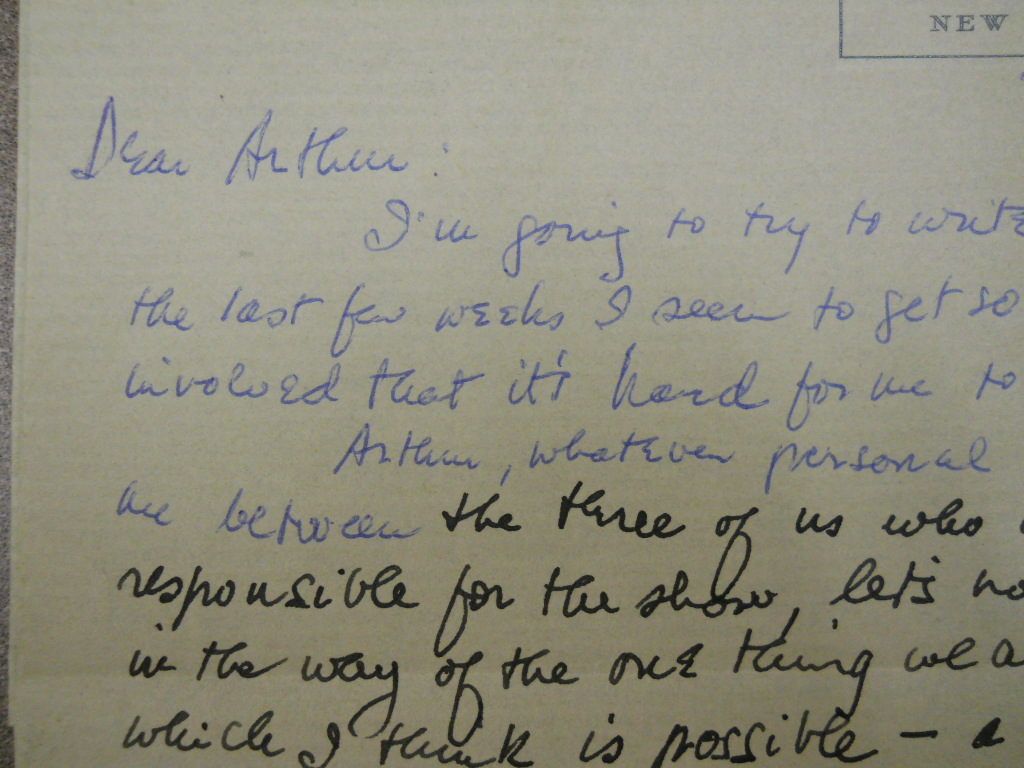 NEW
Dear Arthur:
I'm going to try to write
the last few weeks I seem to get so
involved that it's hard for me to
Arthur, whatever personal
are between the three of us who
responsible for the show, let's no
in the way of the one thing we a
which I think is possible – a